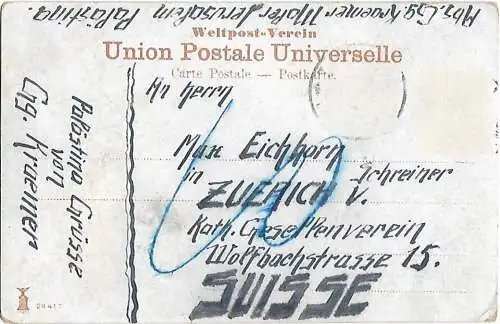 Abs. Chg. Kraemer Mater Jerusalem Palästina.
Weltpost-Verein
Union Postale Universelle
Carte Postale — Postkarte.
An Herrn
Max Eichhorn
Schreiner
in ZUERICH V.
Kath. Gesellenverein
Wolfbachstrasse 15.
SUISSE
Palästina Grüsse
von
Chg. Kraemer
20417